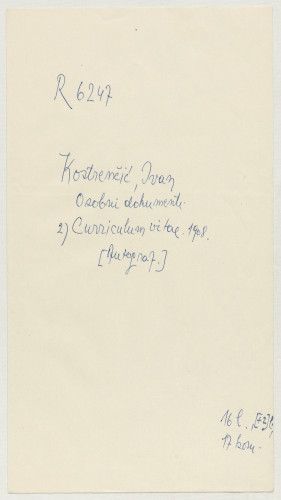 R 6247
Kostrenčić, Ivan
Osobni dokumenti.
2) Curriculum vitae. 1908.
[Autograf.]
16 l.
17 kom.